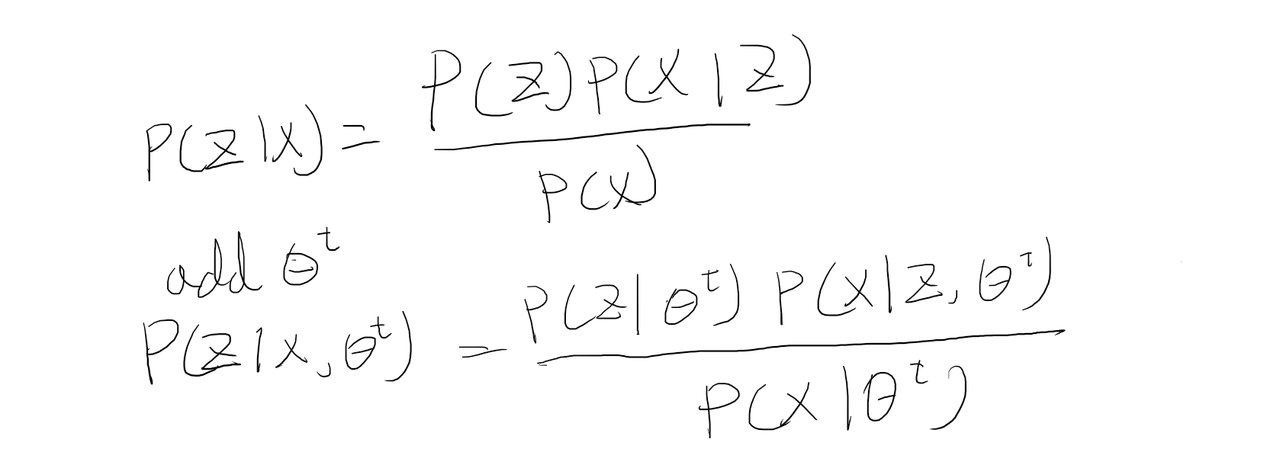 P(Z|X) = \frac{P(Z)P(X|Z)}{P(X)}
add θ^t
P(Z|X,θ^t) = \frac{P(Z|θ^t) P(X|Z,θ^t)}{P(X|θ^t)}